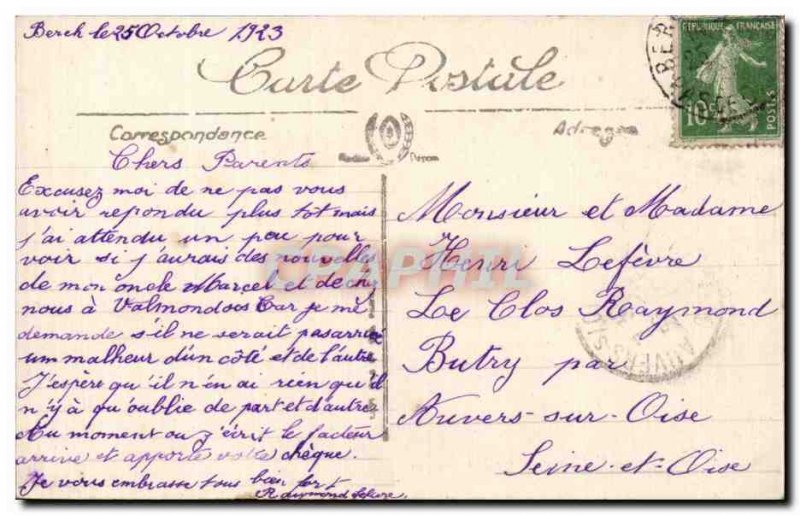 Berck le 25 Octobre 1923
RÉPUBLIQUE FRANÇAISE
10c
POSTES
Carte Postale
Correspondance
Adresse
Chers Parents
Excusez moi de ne pas vous
avoir repondu plus tot mais
j'ai attendu un peu pour
voir si j'aurais des nouvelles
de mon oncle Marcel et de chez
nous à Valmondois Car je me
demande s'il ne serait pas arrivé
um malheur d'un côté et de l'autre
J'espère qu'il n'en ai rien qu'il
n'y à qu'oublie de part et d'autre
Au moment ou j'écrit le facteur
arrive et apporte votre chèque.
Je vous embrasse tous bien fort
Raymond Lefèvre
Monsieur et Madame
Henri Lefèvre
Le Clos Raymond
Butry par
Auvers-sur-Oise
Seine-et-Oise
CPAPHIL